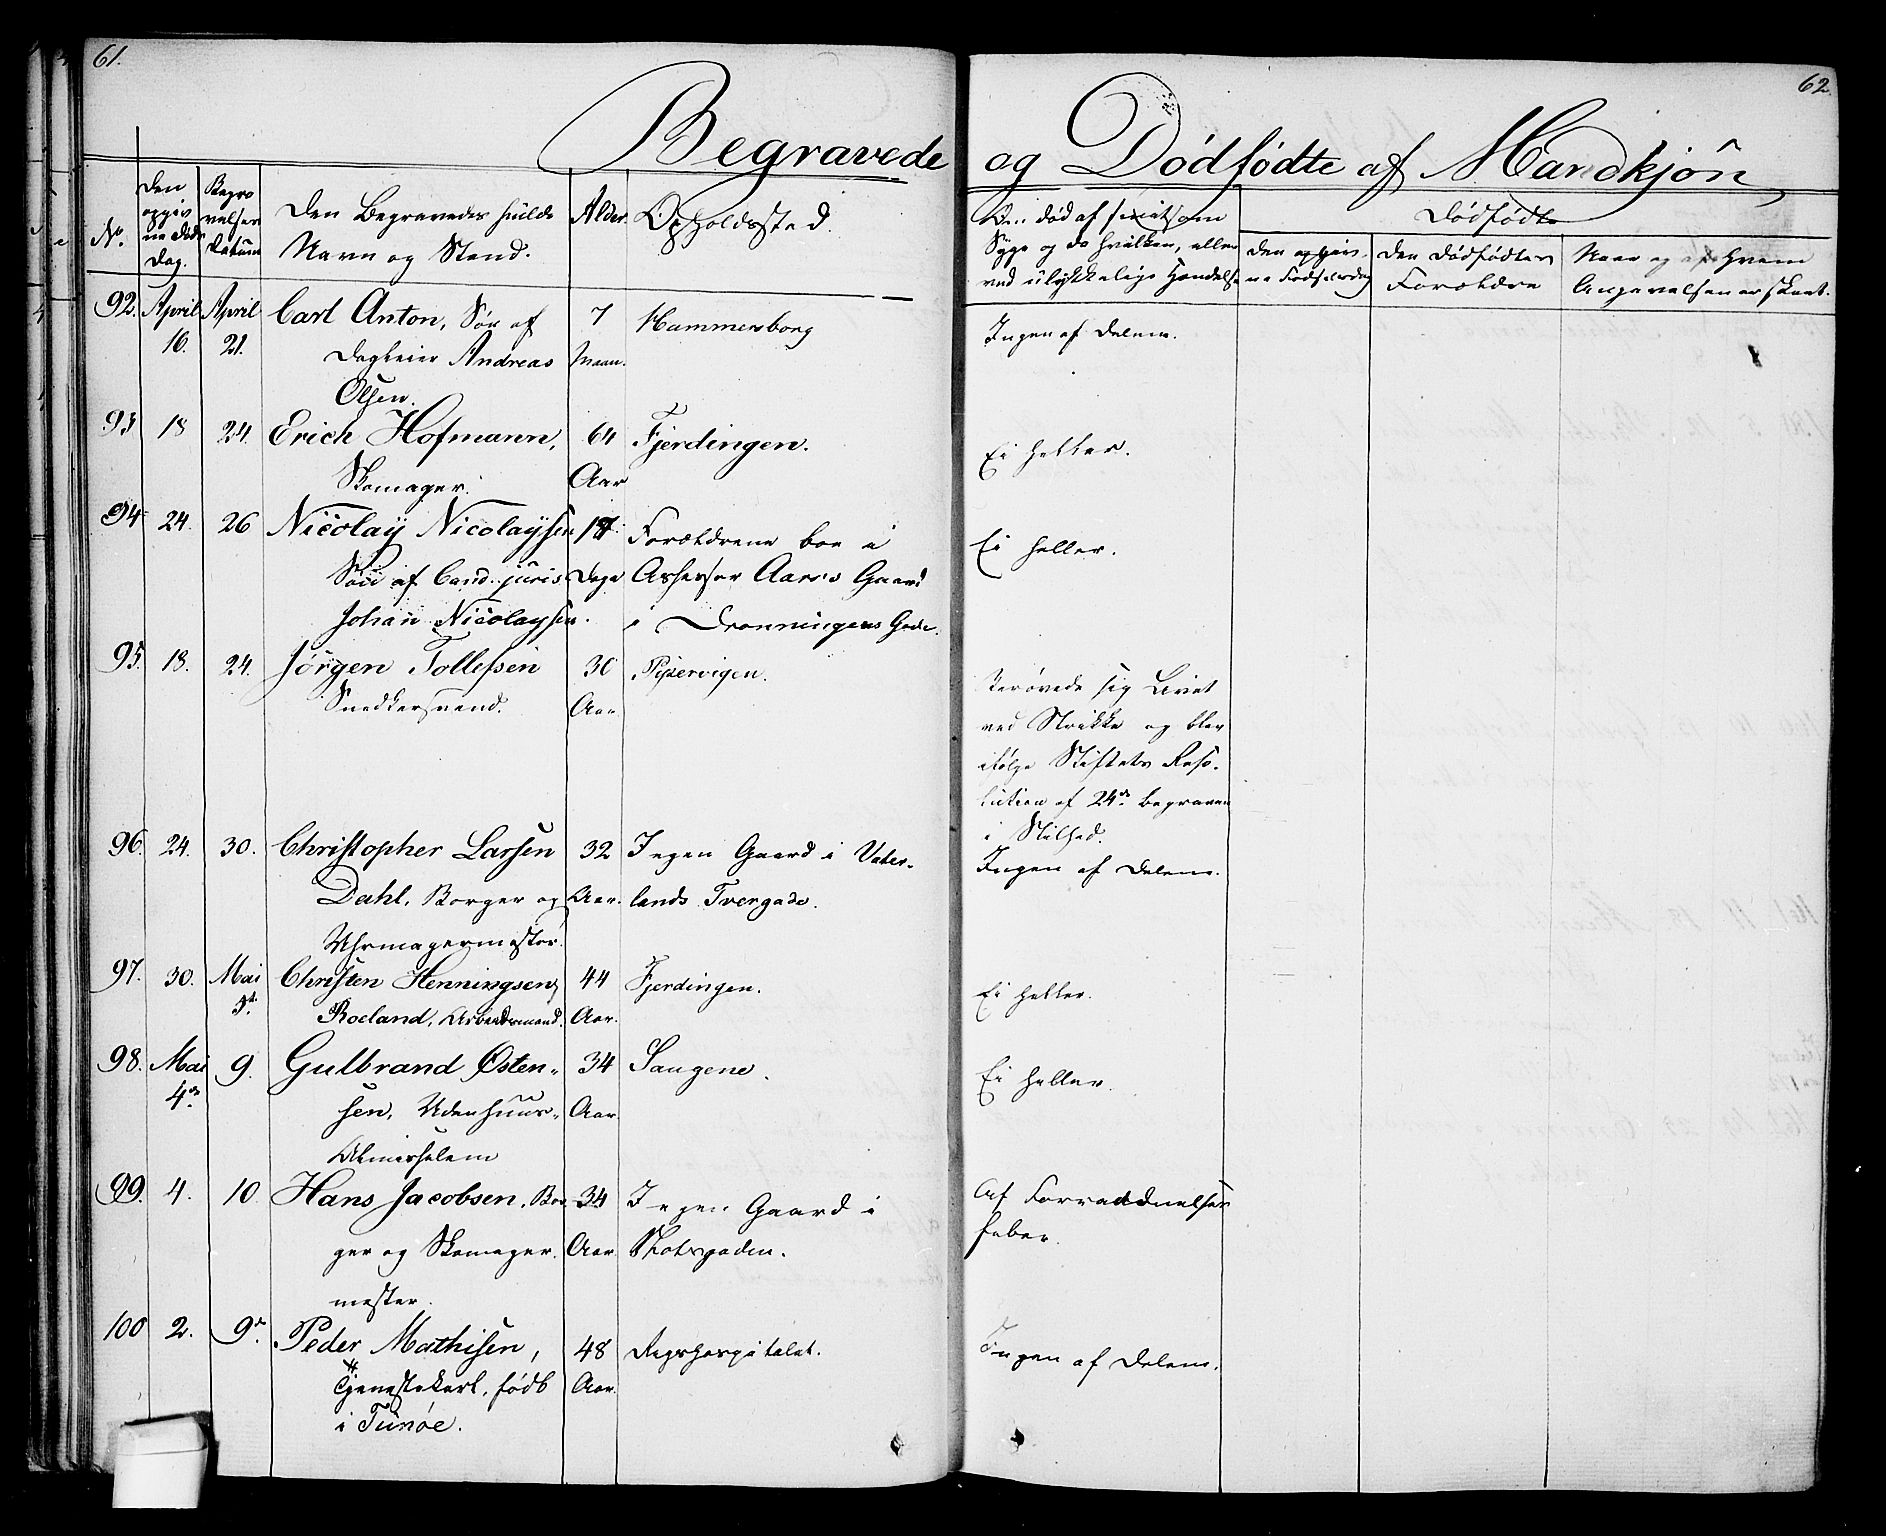 61.
62.
Begravede
og Dødfødte af Mandkjön
No.
Den opgiv
ne Døds
Dag.
Begra
velses
Datum
Den Begravedes fulde
Navn og Stand.
Alder
Opholdssted.
Om død af som
Syge og da hvilken, eller
ved ulykkelige Hændelser
Dødfødte
Den opgiv-
ne Fødselsdag
Den Dødfødtes
Forældre
Naar og af hvem
Angivelsen er skeet.
92. April 16. April 21. Carl Anton, Søn af 7 Hammersborg Ingen af Delene.
Dagleier Andreas Maan.
Olsen.
93 18 24. Erich Hofmann, 64 Fjerdingen. Ei heller.
Skomager. Aar
94 24. 26 Nicolay Nicolaysen Forældrene boe i Ei heller.
Søn af Cand. juris Dage Assessor Aars's Gaard
Johan Nicolaysen. i Dronningens Gade.
95. 18. 24. Jörgen Tollefsen 30 Pipervigen. Berøvede sig Livet
Snedkersvend. Aar ved Strikke og blev
ifølge Stiftets Reso-
lution af 24de begraven
i Stilhed.
96. 24. 30. Christopher Larsen 32 I egen Gaard i Vater- Ingen af Delene.
Dahl, Borger og Aar. lands Tvergade.
Uhrmagermester.
97. 30. Mai Christen Henningsen 44 Fjerdingen. Ei heller.
Roeland, Arbeidsmand. Aar.
98. Mai 4de 9. Gulbrand Østen- 34 Saugene. Ei heller.
sen, Udenhuus- Aar
Almisselem
99. 4. 10 Hans Jacobsen, Bor- 34 I egen Gaard i Af Forraadnelses
ger og Skomager- Aar Slotsgaden. feber.
mester.
100 2. 9de Peder Mathisen, 48 Rigshospitalet. Ingen af Delene.
Tjenestekarl, födt Aar.
i Tunöe.